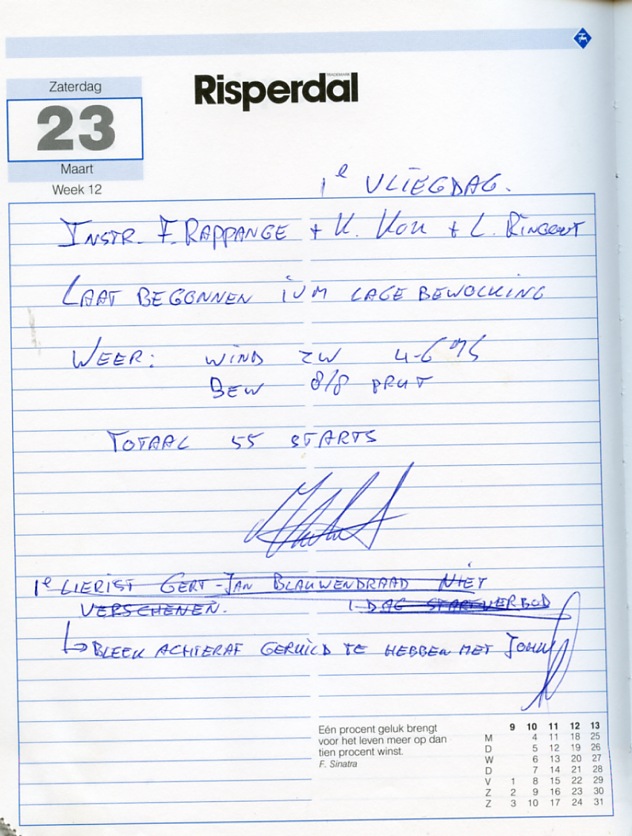 Zaterdag
23
Maart
Week 12
Risperdal
1e VLIEGDAG.
INSTR. F. RAPPANGE + K. KOU + L. RINGOUT
LAAT BEGONNEN IVM LAGE BEWOLKING
WEER: WIND ZW 4-6 m/s
BEW 8/8 DRUT
TOTAAL 55 STARTS
1e LIERIST GERT-JAN BLAUWENDRAAD NIET
VERSCHENEN. 1 DAG STARTVERBOD
BLEEK ACHTERAF GERUILD TE HEBBEN MET JOHN
Eén procent geluk brengt
voor het leven meer op dan
tien procent winst.
F. Sinatra
9 10 11 12 13
M 4 11 18 25
D 5 12 19 26
W 6 13 20 27
D 7 14 21 28
V 1 8 15 22 29
Z 2 9 16 23 30
Z 3 10 17 24 31